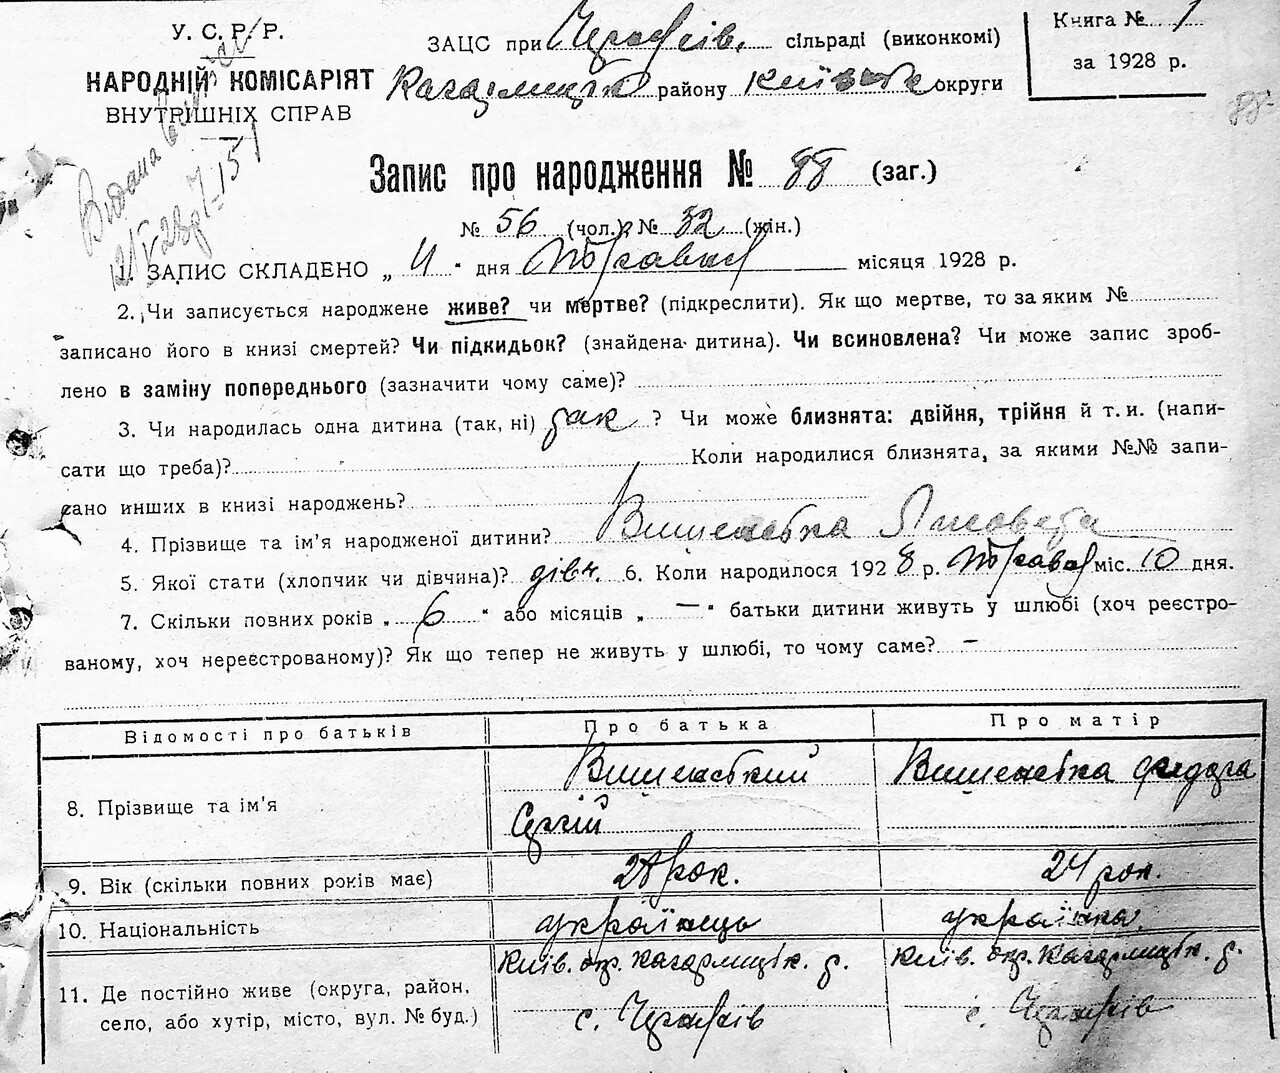 У. С. Р. Р.
НАРОДНІЙ КОМІСАРІЯТ
ВНУТРІШНІХ СПРАВ
ЗАЦС при сільраді (виконкомі)
Кагарлицьк району Київськ округи
Книга № 1
за 1928 р.
88
Видана
Запис про народження № 88 (заг.)
№ 56 (чол.) № 32 (жін.)
1. ЗАПИС СКЛАДЕНО „ 11 “ дня Травня місяця 1928 р.
2. Чи записується народжене живе? чи мертве? (підкреслити). Як що мертве, то за яким №
записано його в книзі смертей? Чи підкидьок? (знайдена дитина). Чи всиновлена? Чи може запис зроб-
лено в заміну попереднього (зазначити чому саме)?
3. Чи народилась одна дитина (так, ні) так ? Чи може близнята: двійня, трійня й т. и. (напи-
сати що треба)? Коли народилися близнята, за якими №№ запи-
сано инших в книзі народжень?
4. Прізвище та ім'я народженої дитини? Вишенська Лисовета
5. Якої стати (хлопчик чи дівчина)? дівч. 6. Коли народилося 1928 р. Травня міс. 10 дня.
7. Скільки повних років „ 6 “ або місяців „ — “ батьки дитини живуть у шлюбі (хоч реєстро-
ваному, хоч нереєстрованому)? Як що тепер не живуть у шлюбі, то чому саме? —
Відомості про батьків Про батька Про матір
8. Прізвище та ім'я Вишенський Сергій Вишенська Федора
9. Вік (скільки повних років має) 28 рок. 24 рок.
10. Національність українець українка
11. Де постійно живе (округа, район, Київ. окр. Кагарлицьк. р. Київ. окр. Кагарлицьк. р.
село, або хутір, місто, вул. № буд.) с. с.